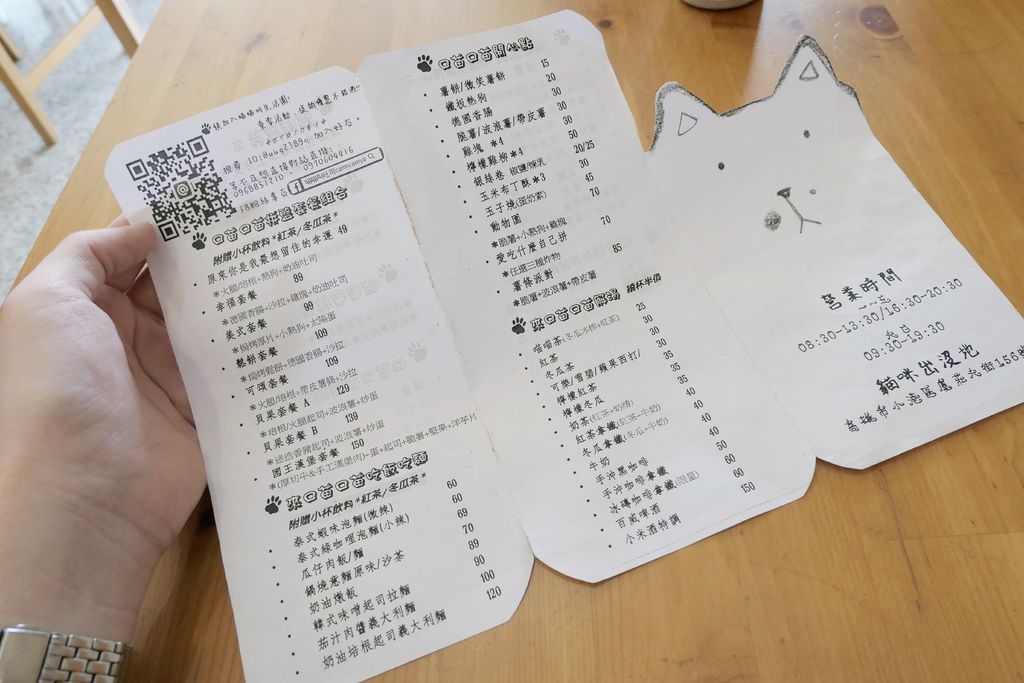 搜尋 ID:@uug2389q 加入好友。
0968857270 0970604416
FB粉絲專頁
口苗口苗拼盤套餐組合
附贈小杯飲料*紅茶/冬瓜茶*
原來你是我最想留住的幸運 49
*火腿/培根+熱狗+奶油吐司
幸福套餐 89
*德國香腸+沙拉+雞塊+奶油吐司
美式套餐 99
*焗烤厚片+小熱狗+太陽蛋
鬆餅套餐 109
*焗烤鬆餅+德國香腸+沙拉
可頌套餐 109
*火腿/培根+帶皮薯條+沙拉
貝果套餐 A 129
*培根/火腿起司+波浪薯+炒蛋
貝果套餐 B 139
國王漢堡套餐 150
來口苗口苗吃飯吃麵
附贈小杯飲料*紅茶/冬瓜茶*
泰式蝦味泡麵(微辣) 60
泰式綠咖哩泡麵(小辣) 60
瓜仔肉飯/麵 70
鍋燒意麵原味/沙茶 89
奶油燉飯 90
韓式味噌起司拉麵
茄汁肉醬義大利麵 100
奶油培根起司義大利麵 120
口苗口苗開心點
薯餅/微笑薯餅 15
鐵板熱狗 20
德國香腸 30
脆薯/波浪薯/帶皮薯 30
雞塊 *4 30
檸檬雞柳*4 50
銀絲卷 椒鹽/煉乳 20/25
玉米布丁酥*3 30
玉子燒(蛋奶素) 45
動物園 70
*脆薯+小熱狗+雞塊
愛吃什麼自己拼 70
*任選三種炸物
薯條派對 85
*脆薯+波浪薯+帶皮薯
來口苗口苗解渴 續杯半價
喵喵茶(冬瓜冰棒+紅茶)
紅茶 25
冬瓜茶 30
可樂/雪碧/蘋果西打/ 30
檸檬紅茶 30
檸檬冬瓜 35
奶茶(紅茶+奶精) 35
紅茶拿鐵(紅茶+牛奶) 35
冬瓜拿鐵(冬瓜+牛奶) 40
牛奶 40
手沖黑咖啡 40
手沖咖啡拿鐵 50
冰磚咖啡拿鐵(限量) 60
百威啤酒 60
小米酒特調 150
營業時間
08:30-13:30/16:30-20:30
09:30-19:30
貓咪出沒地
高雄市小港區店北街156號